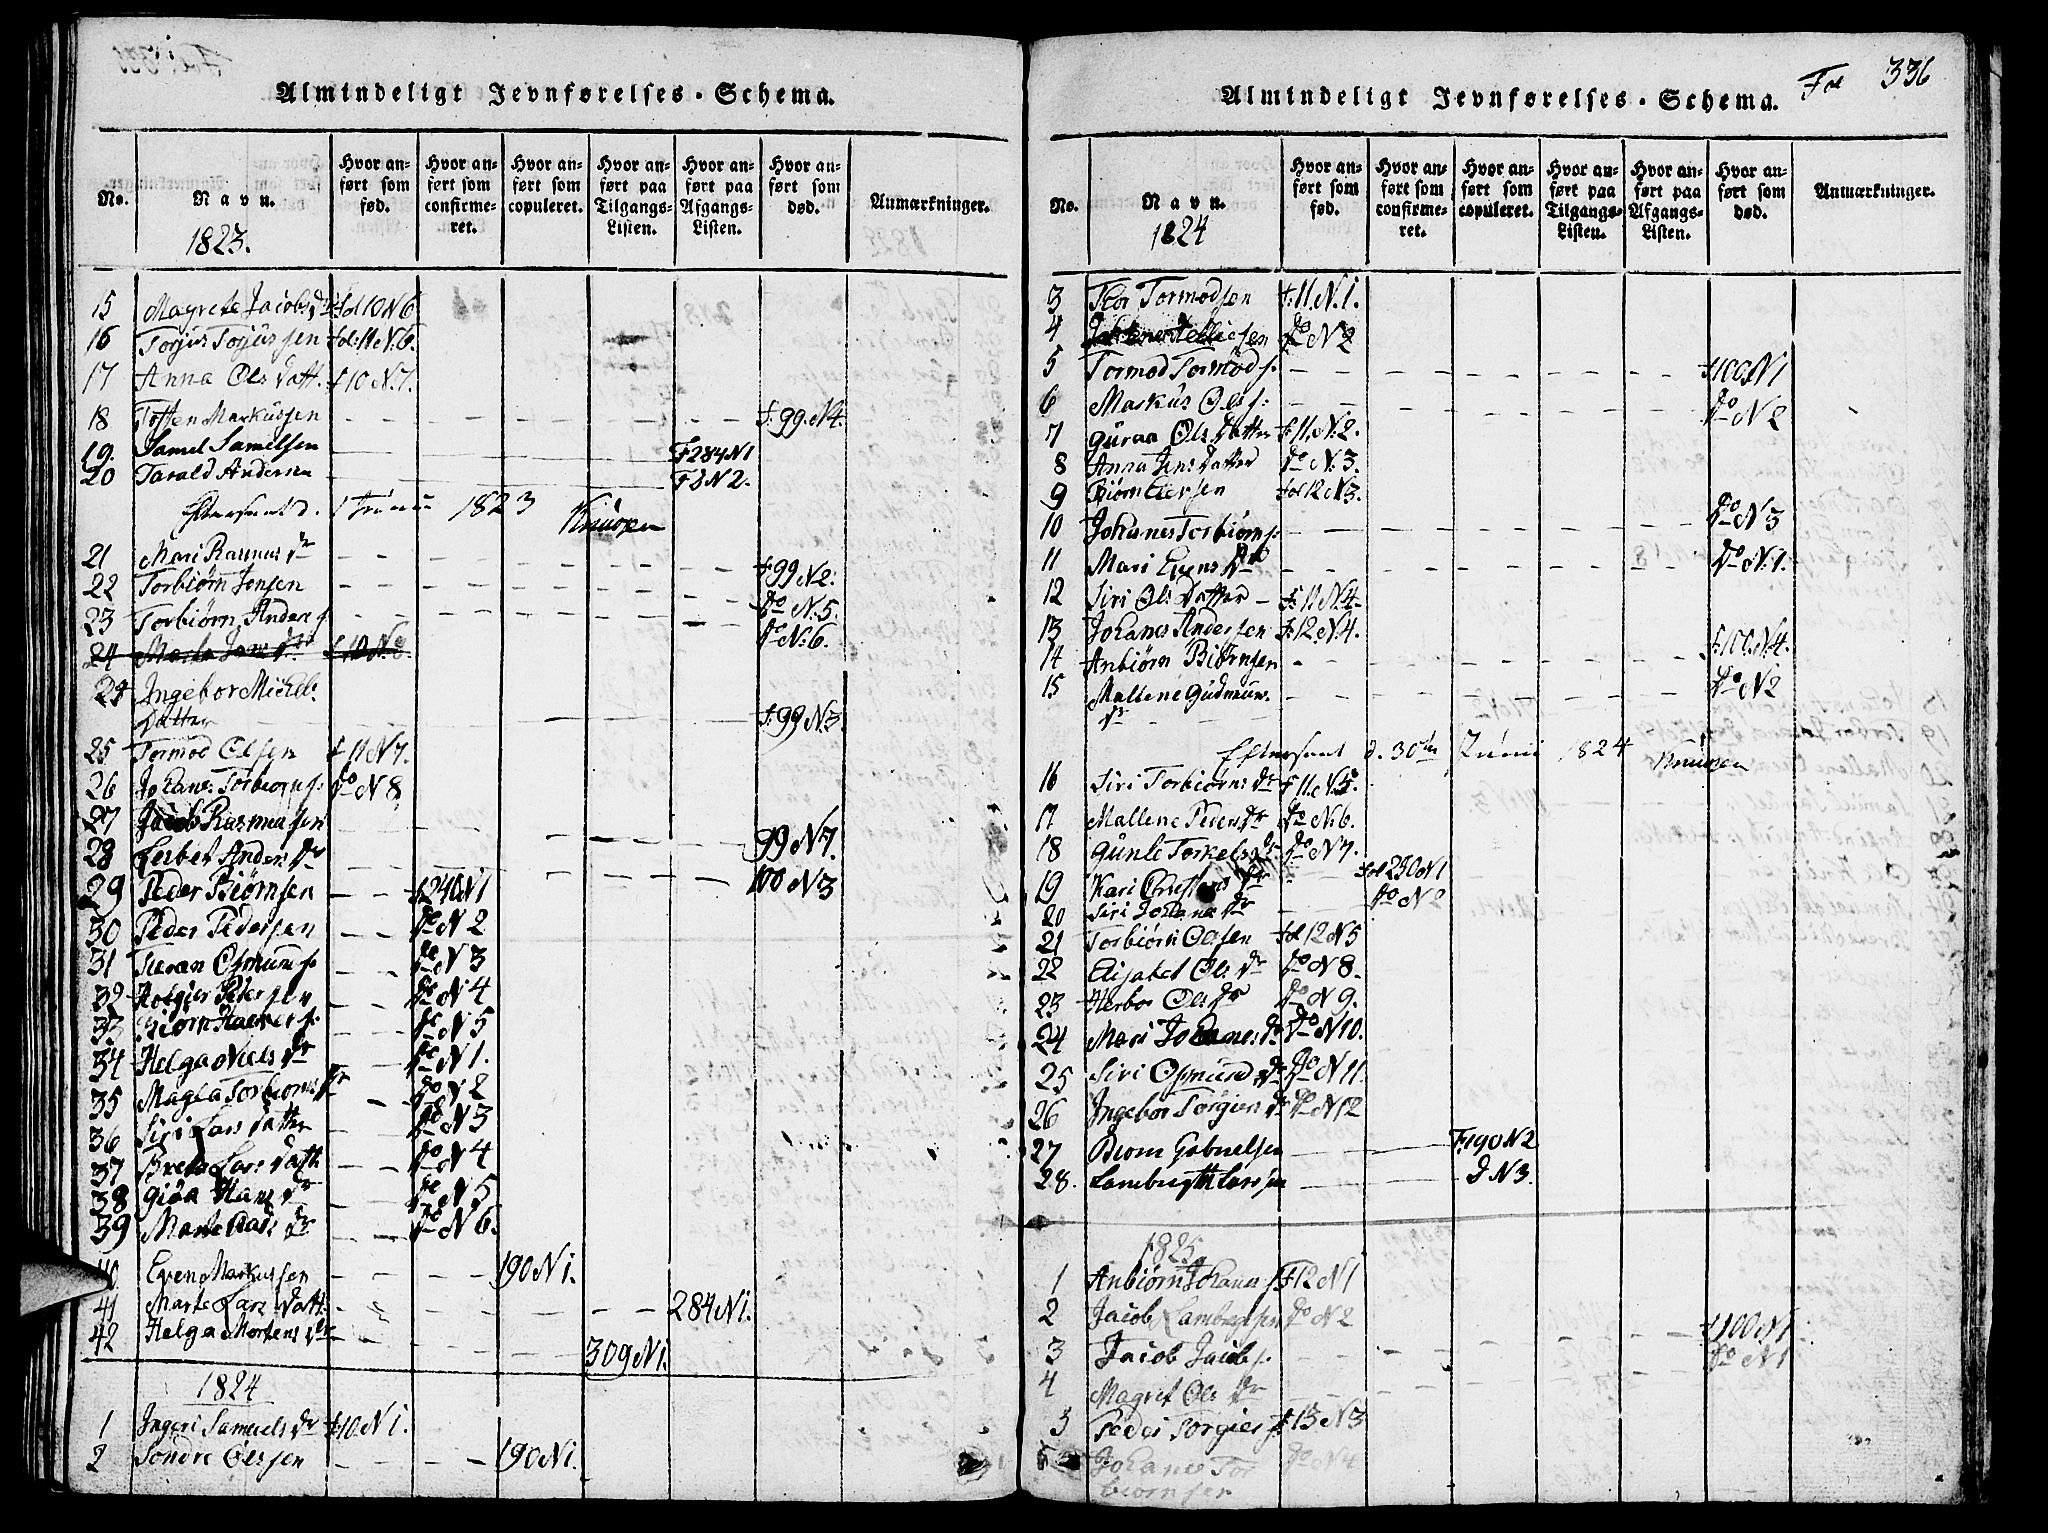 Almindeligt Jevnførelses-Schema.
No.
Navn.
1823.
Hvor anført som fød.
Hvor anført som confirmeret.
Hvor anført som copuleret.
Hvor anført paa Tilgangs-Listen.
Hvor anført paa Afgangs-Listen.
Hvor anført som død.
Anmærkninger.
15 Magrete Jacobs dr fol 10 N 6
16 Torjus Torjussen fol: 11 N. 6.
17 Anna Ols datt. f 10 N. 7.
18 Markussen f. 99. N 4.
19. Samel Samelsen F 284 N 1
20 Tarald Andersen F d N 2.
1823
21 Mari Rasmus dr f 99 N 2.
22 Torbiørn Jensen do N. 5.
23 Torbiørn Anders s. do N. 6.
24
24 Ingebor Michels
Datter f. 99 N. 3
25 Tormod Olsen f 11 N 7.
26 Johanes Torbiørn s. do N 8
27 Jacob Rasmusen 99 N 7.
28 Anders dr 100 N 3
29 Peder Biørnsen f 240 N 1
30 Peder Pedersen do N 2
31 Osmund s. do N 3
32 Petersen do N 4
33 Biørn do N 5
34 Helga Niels dr do N 1.
35 Torbiørns dr do N 2
36 Siri Lars datter do N 3
37 Lars datt do N 4
38 Hans dr do N 5
39 dr do N 6.
40 Even Markussen 190 N 1.
41 Marte Lars datt. 284 N 1.
42 Helga Mortens dr 309 N 1.
1824
1 Ingeri Samuels dr f 10. N 1.
2 Sondre Olssen 190 N 1.
Almindeligt Jevnførelses-Schema.
Fol 336
No.
Navn.
1824
Hvor anført som fød.
Hvor anført som confirmeret.
Hvor anført som copuleret.
Hvor anført paa Tilgangs-Listen.
Hvor anført paa Afgangs-Listen.
Hvor anført som død.
Anmærkninger.
3 Tormodsen f. 11. N. 1.
4 do N 2
5 Tormod Tormod s. f 100 N 1
6 Markus Ols s: do N 2
7 Guraa Ols Datter f. 11. N. 2.
8 Anna Jens datter do N. 3.
9 Biørn fol 12 N 3.
10 Johanes Torbiørn s. do N 3
11 Mari Evens dr do N. 1.
12 Siri Ols Datter f. 11 N. 4.
13 Johanes Andersen f. 12 N. 4.
14 Anbiørn Biørnsen f. 100. N. 4.
15 Mallene Gudmun
dr do N 2
d. 30te Juni 1824
16 Siri Torbiørns dr f 11. N. 5.
17 Mallene Peders dr do N. 6.
18 Gunle Torkels dr do N 7.
19 Kari dr fol 250 N 1
20 Siri Johanes dr do N 2
21 Torbiørn Olssen fol 12 N 5
22 Elisabet Ols dr do N 8.
23 Herbor Ols dr do N 9.
24 Mari Johanes dr do N 10.
25 Siri Osmund dr do N 11.
26 Ingebor Torgiers dr do N 12
27 Biorn Gabrielsen F. 190 N 2
28. Lambregt Larssen d N 3.
1825.
1 Anbiørn Johanes s F 12 N 1
2 Jacob Lambregtsen do N 2
3 Jacob Jacob s. f 100 N 1
4 Magret Ols dr do N 1
5 Peder Torgiers s f 13 N 3
6 Johanes Tor
biørnsen do N 4